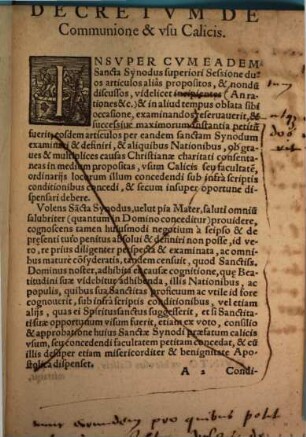 DECRETVM DE
Communione & vsu Calicis.
INSVPER CVM EADEM
Sancta Synodus superiori Sessione du-
os articulos aliâs propositos, & nondũ
discussos, videlicet incipientes (An ra-
tiones &c.) & in aliud tempus oblata sibi
occasione, examinandos reseruauerit, &
successiue maximorum instantia petitũ
fuerit eosdem articulos per eandem sanctam Synodum
examinari & definiri, & aliquibus Nationibus, ob gra-
ues & multiplices causas Christianæ charitati consenta-
neas in medium propositas, vsum Calicis seu facultatẽ,
ordinarijs locorum illum concedendi sub infrà scriptis
conditionibus concedi, & secum insuper oportune di-
spensari debere.
Volens Sãcta Synodus, uelut pia Mater, saluti omniũ
salubriter (quantum in Domino conceditur) prouidere,
cognoscens tamen huiusmodi negotium à seipso & de
presenti usq; penitus absolui & definiri non posse, id ve-
ro, re prius diligenter perspecta & examinata, ac omni-
bus mature cõsyderatis, tandem censuit, quod Sanctiss.
Dominus noster, adhibita ea causæ cognitione, quę Bea-
titudini suæ videbitur adhibenda, illis Nationibus, ac
populis, quibus sua Sanctitas proficuum ac vtile id fore
cognouerit, sub infrà scriptis conditionibus, vel etiam
alijs, quas ei Spiritussanctus suggesserit, et si Sanctita-
ti suæ opportunum visum fuerit, etiam ex voto, consilio
& approbatione huius Sanctæ Synodi præfatum calicis
vsum, seu concedendi facultatem petitam concedat, & cũ
illis desuper etiam misericorditer & benignitate Apo-
stolica dispenset.
A 2 Condi-
pro quibus petit